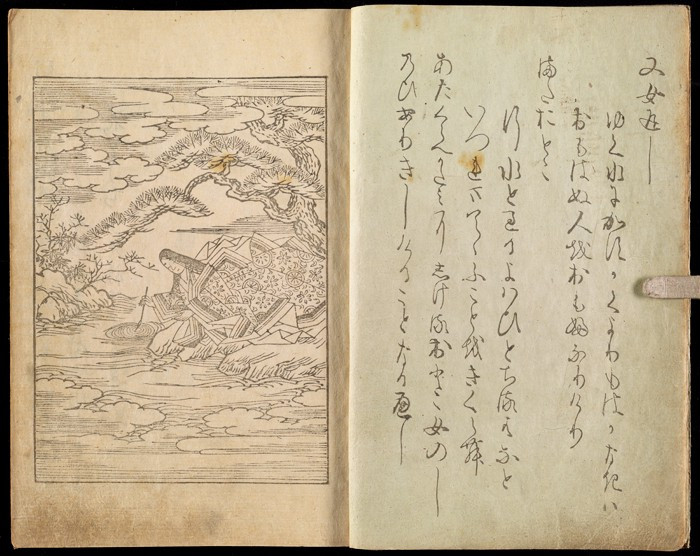 又女返し
ゆく水にかすかくよりもはかなきは
おもはぬ人をおもふなりけり
またおとこ
行水とすくるよはひとちる花と
いつれまててふことをきくらん
あたくらへかたみにしけるおとこ女のし
のひありきしけることなるへし